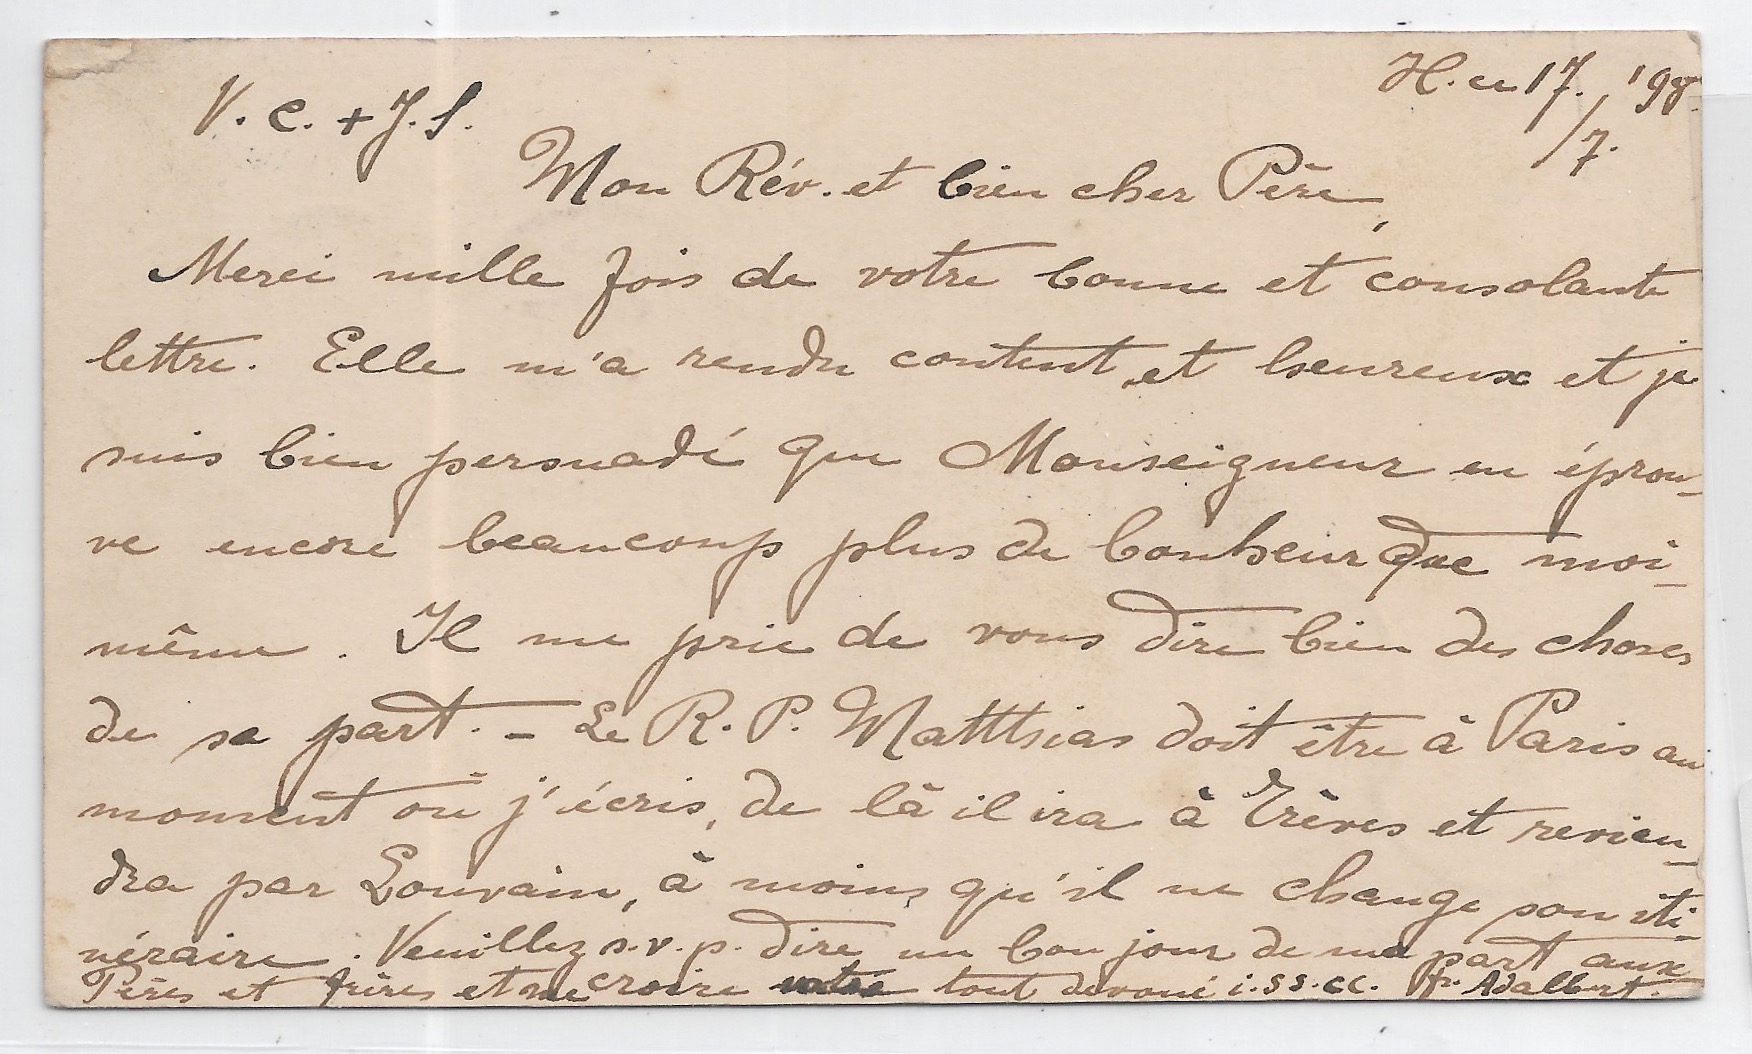 H. ce 17./7. '98.
V. C. + J. S.
Mon Rév. et bien cher Père,
Merci mille fois de votre bonne et consolante
lettre. Elle m'a rendu content et heureux et je
suis bien persuadé que Monseigneur en éprou-
ve encore beaucoup plus de bonheur que moi-
même. Il me prie de vous dire bien des choses
de sa part. - Le R. P. Matthias doit être à Paris au
moment où j'écris, de là il ira à Trèves et revien-
dra par Louvain, à moins qu'il ne change son iti-
néraire. Veuillez s.v.p. dire un bonjour de ma part aux
Pères et frères et me croire votre tout dévoué i.SS.CC. fr. Adalbert.